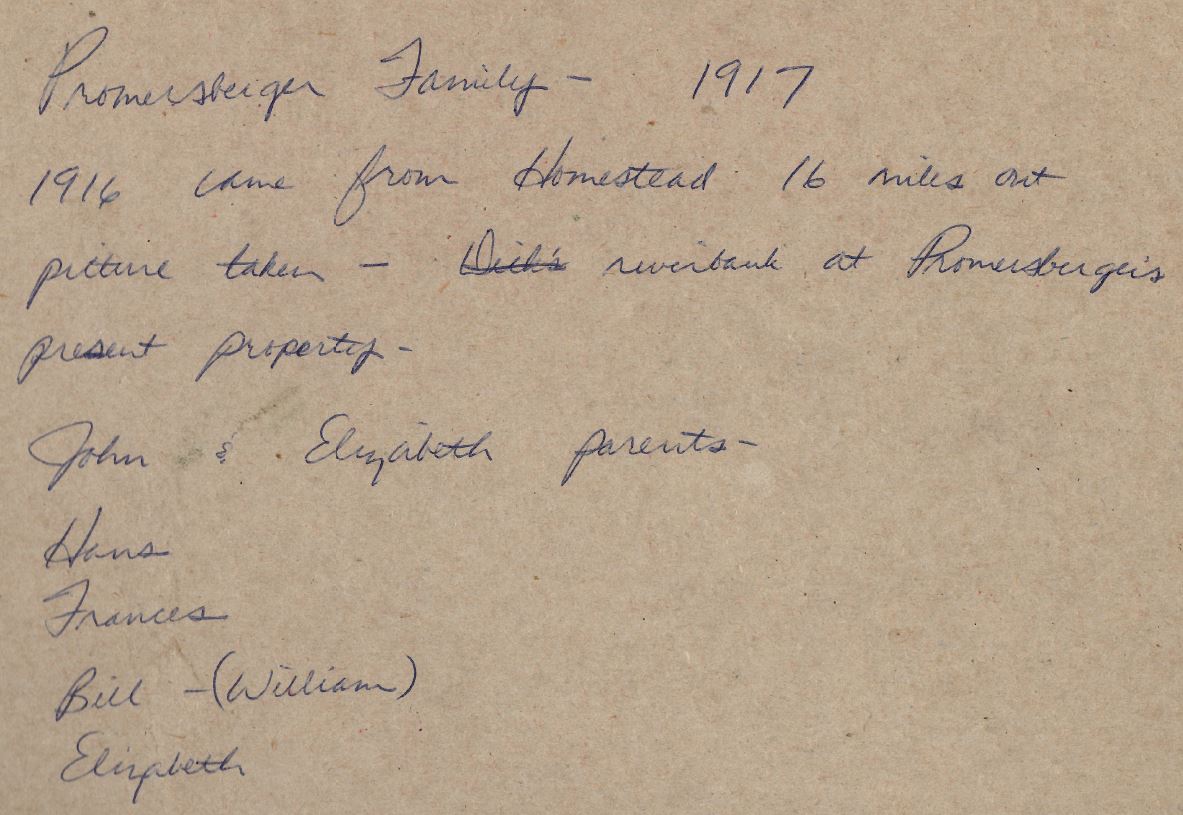 Promersberger Family - 1917
1916 came from Homestead 16 miles out
picture taken - Dick's riverbank at Promersberger's
present property -
John & Elizabeth parents -
Hans
Frances
Bill - (William)
Elizabeth